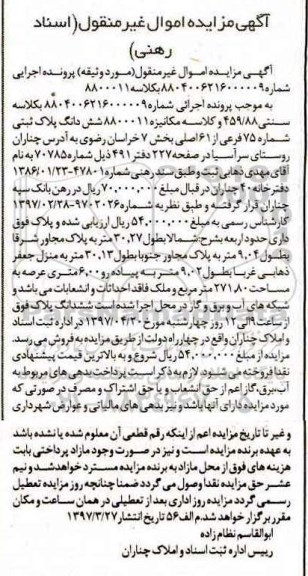 آگهی مزایده اموال غیر منقول(اسناد
رهنی)
آگهی مزایده اموال غیرمنقول(مورد وثیقه) پرونده اجرایی
شماره ۸۸۰۴۰۰۶۲۱۶۰۰۰۰۰۹ بکلاسه ۸۸۰۰۰۱۱
به موجب پرونده اجرائی شماره ۸۸۰۴۰۰۶۲۱۶۰۰۰۰۰۹ بکلاسه
سنتی ۴۵۹/۸۸ و کلاسه مکانیزه ۸۸۰۰۰۱۱ شش دانگ پلاک ثبتی
شماره ۷۵ فرعی از ۶۱ اصلی بخش ۷ خراسان رضوی به آدرس چناران
روستای سر آسیا در صفحه ۲۲۷ دفتر ۴۹۱ ذیل شماره ۷۰۷۸۵ به نام
آقای مهدی ذهابی ثبت و طبق سند رهنی شماره ۴۷۸۰۱-۱۳۸۶/۰۱/۲۳
دفترخانه ۴۰ چناران در قبال مبلغ ۷۰،۰۰۰،۰۰۰ ریال در رهن بانک سپه
چناران قرار گرفته و طبق نظریه شماره ۹۷۰۳۰۲۶-۱۳۹۷/۰۲/۳۸
کارشناس رسمی به مبلغ ۵۴۰،۰۰۰،۰۰۰ ریال ارزیابی شده و پلاک فوق
داری حدود اربعه بشرح: شمالا بطول ۳۰،۲۷ متر به پلاک مجاور شرقا
بطول ۹،۰۴ متر به پلاک مجاور جنوبا بطول ۳۰،۱۳ متر به منزل جعفر
ذهابی غربا بطول ۹،۰۲ متر به پیاده رو ۶،۰۰ متری عرصه به
مساحت ۲۷۱،۸۰ متر مربع و ملک فاقد احداثات و انشعابات می باشد و
شبکه های آب و برق و گاز در محل اجرا شده است ششدانگ پلاک فوق
از ساعت ۹ الی ۱۲ روز چهارشنبه مورخ ۱۳۹۷/۰۴/۲۰ در اداره ثبت اسناد
و املاک چناران واقع در چهارراه دولت از طریق مزایده به فروش می رسد.
مزایده از مبلغ ۵۴۰،۰۰۰،۰۰۰ ریال شروع و به بالاترین قیمت پیشنهادی
نقدا فروخته می شود. لازم به ذکر است پرداخت بدهی های مربوط به
آب،برق،گاز اعم از حق انشعاب و یا حق اشتراک و مصرف در صورتی که
مورد مزایده دارای آنها باشد و نیز بدهی های مالیاتی و عوارض شهرداری
و غیر تا تاریخ مزایده اعم از اینکه رقم قطعی آن معلوم شده یا نشده باشد
به عهده برنده مزایده است و نیز در صورت وجود مازاد پرداختی بابت
هزینه های فوق از محل مازاد به برنده مزایده مسترد خواهد شد و نیم
عشر حق مزایده نقدا وصول می گردد ضمنا چنانچه روز مزایده تعطیل
رسمی گردد مزایده روز اداری بعد از تعطیلی در همان ساعت و مکان
مقرر برگزار خواهد شد.م الف ۵۶ تاریخ انتشار ۱۳۹۷/۳/۲۷
ابوالقاسم نظام زاده
رییس اداره ثبت اسناد و املاک چناران